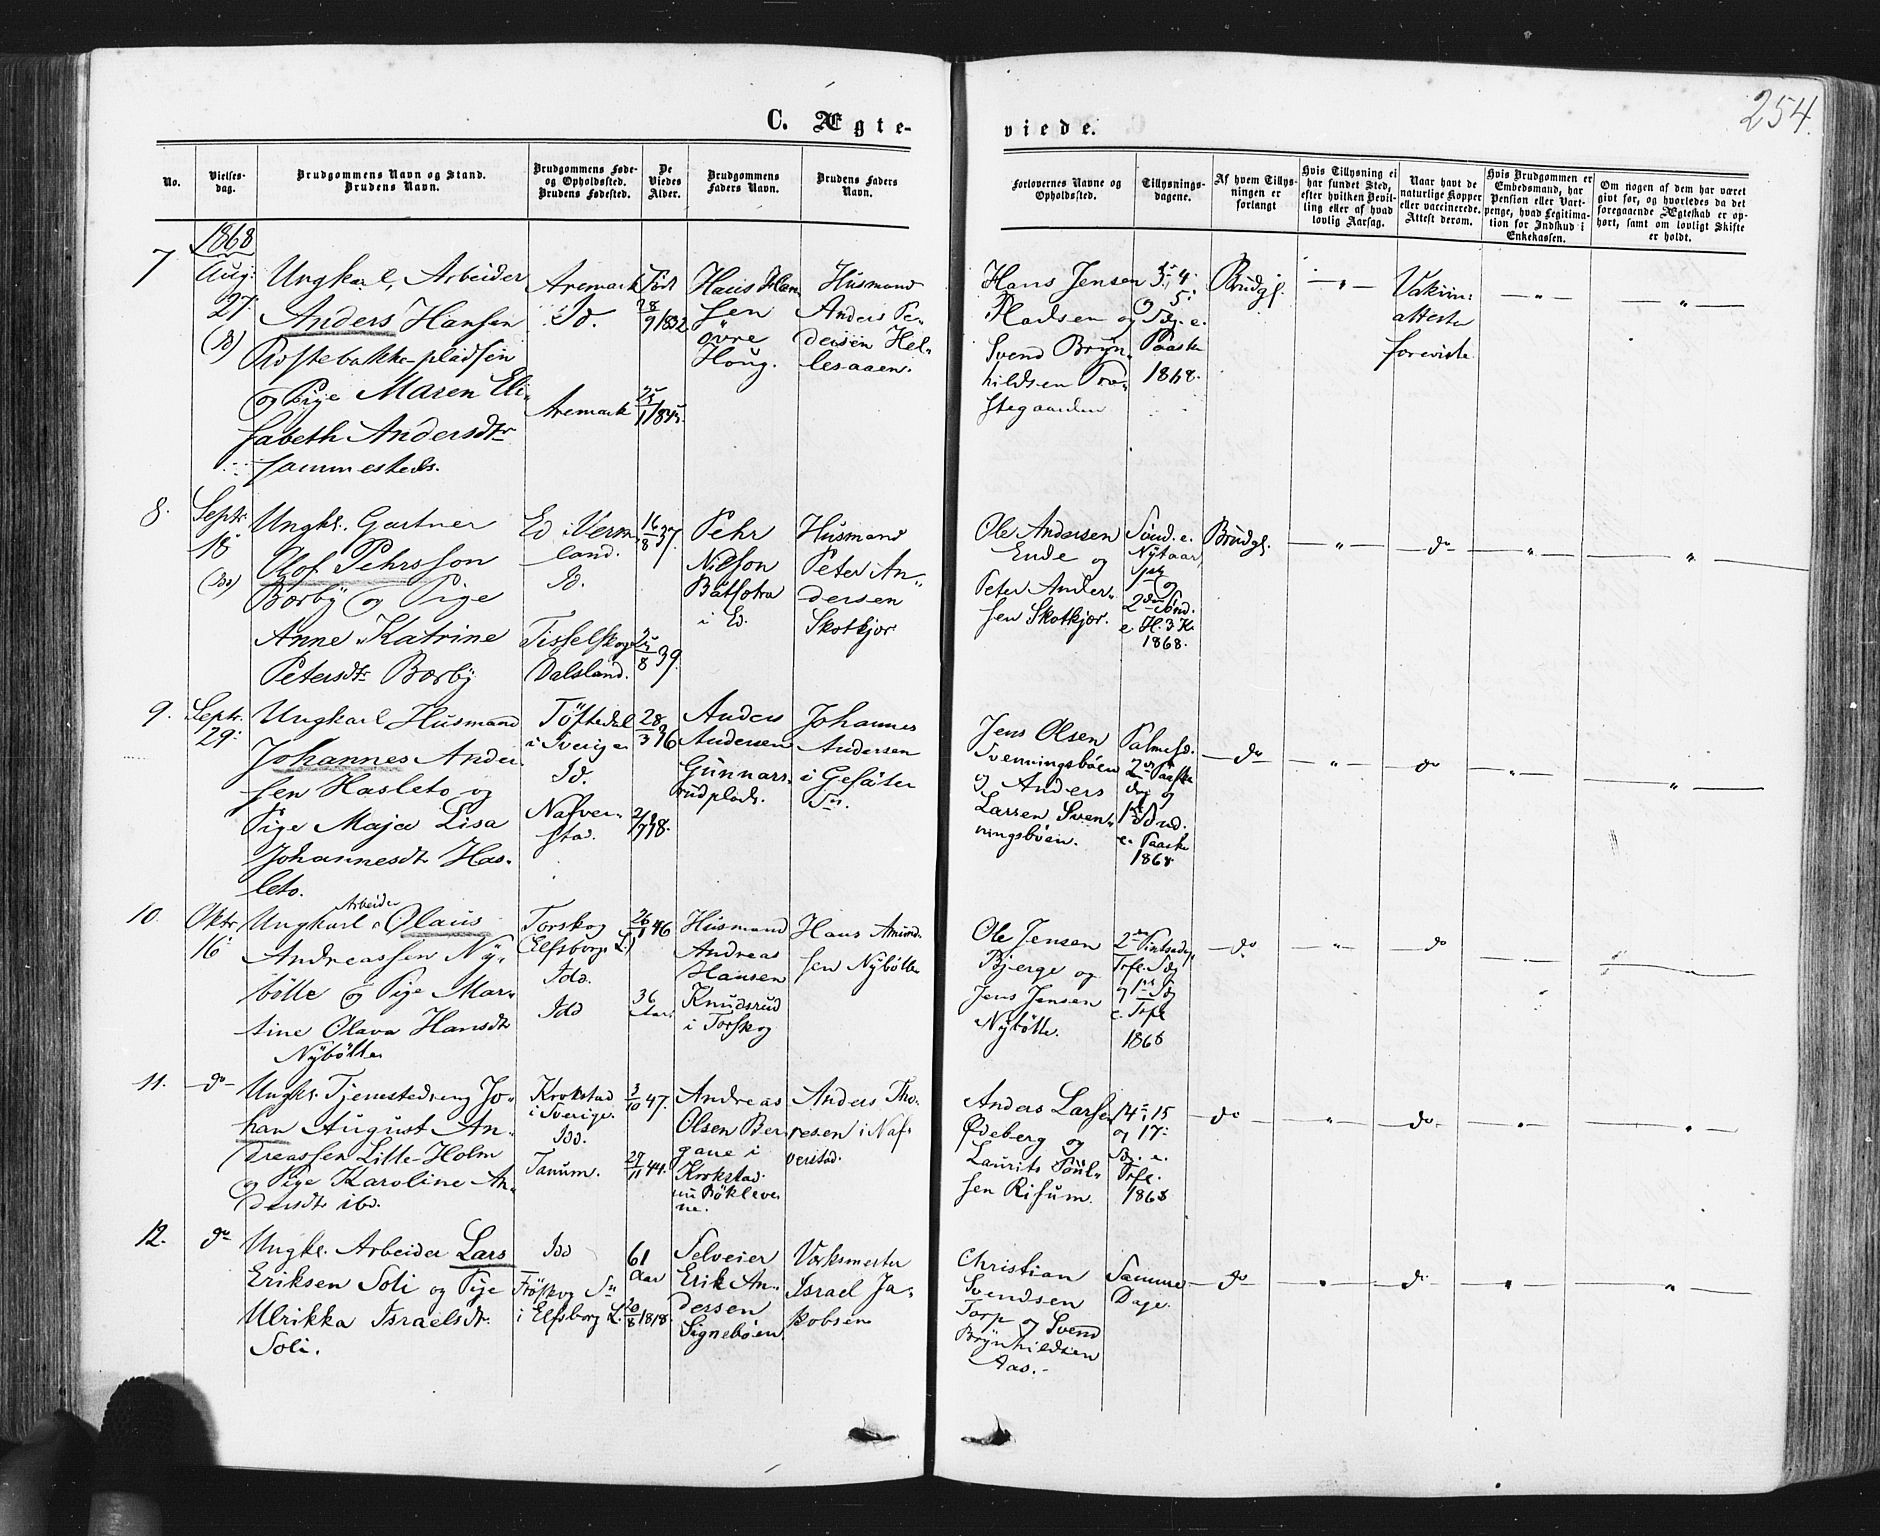 254.
C. Ægte-
viede.
No.
Vielses-
dag.
Brudgommens Navn og Stand.
Brudens Navn.
Brudgommens Føde-
og Opholdssted.
Brudens Fødested.
De
Viedes
Alder.
Brudgommens
Faders Navn.
Brudens Faders
Navn.
Forlovernes Navne og
Opholdssted.
Tillysnings-
dagene.
Af hvem Tillys-
ningen er
forlangt
Hvis Tillysning ei
har fundet Sted,
efter hvilken Bevil-
ling eller af hvad
lovlig Aarsag.
Naar havt de
naturlige Kopper
eller vaccinerede.
Attest derom.
Hvis Brudgommen er
Embedsmand, har
Pension eller Vart-
penge, hvad Legitima-
tion for Indskud i
Enkekassen.
Om nogen af dem har været
givt før, og hvorledes da det
foregaaende Ægteskab er op-
hørt, samt om lovligt Skifte
er holdt.
1868
7
Aug:
27.
Ungkarl, Arbeider
Anders Hansen
pladsen
og Pige Maren Eli-
sabeth Andersdtr
sammesteds.
Aremark
Id.
Aremark
Født
28/9 1832
25/1 1845.
Hans Han
sen
øvre
Houg.
Husmand
Anders Pe-
dersen Hel-
lesaaen.
Hans Jensen
og
Svend Bryn-
hildsen Pro-
stegaarden
3, 4
og 5
Sdg. e.
Paaske
1868.
Brudg.
"
Vakcin:
attester
foreviste
"
"
8.
Septr
18
Ungk. Gartner
Olof Pehrsson
Borby og Pige
Anne Katrine
Petersdtr Borby
Ed i Verm
land.
Id.
Tisselskog
Dalsland.
16/8 37.
25/8 39.
Pehr
Nilson
Båtsotra
i Ed.
Husmand
Peter An-
dersen
Skotkjør
Ole Andersen
Ende og
Peter Ander-
sen Skotkjør.
Sønd. e.
Nytaar
og
2den Sønd
e. H. 3 K.
1868.
Brudg.
"
do
"
"
9.
Septr.
29.
Ungkarl Husmand
Johannes Ander
sen Hasleto og
Pige Maja Lisa
Johannesdtr Has-
leto.
Töftedal
i Sverige
Id.
Nafver-
stad.
28/3 36
Anders
Andersen
Gunnars-
rudplads.
Johannes
Andersen
i Gesäter
Sn.
Jens Olsen
Svenningsbøen
og Anders
Larsen Sven-
ningsbøen.
Palmesø.
2den Paaske
dag og
1ste Sønd.
e. Paaske
1868
do
"
do
"
"
10.
Oktr
16
Ungkarl Arbeider Olaus
Andreassen Ny-
bølle og Pige Mar-
tine Olava Hansdtr
Nybølle
Torskog
(Elfsborgs L.)
Idd.
Idd
26/1 46
36
Aar
Husmand
Andreas
Hansen
Knudsrud
i Torskog
Hans Amund-
sen Nybølle
Ole Jensen
Bjerge og
Jens Jensen
Nybølle.
2den Pintsedag,
Trfe. Sdg
og 1ste Sdg
e. Trfe
1868
do
"
do
"
"
11.
do
Ungk. Tjenestedreng Jo-
han August An-
dreassen Lille-Holm
og Pige Karoline An-
dersdtr ibd.
Krokstad
i Sverige.
Idd.
Tanum.
3/10 47.
29/11 44.
Andreas
Olsen Ber
gane i
Krokstad
Anders Tho-
resen i Naf-
verstad.
Anders Larsen
Ødeberg og
Laurits Poul-
sen Risum.
14, 15
og 17
Sdg. e.
Trfe.
1868
do
"
do
"
"
12.
do
Ungk. Arbeider Lars
Eriksen Soli og Pige
Ulrikka Israelsdtr
Soli.
Idd
Fröskog Sn
i Elfsborg L.
61
Aar
20/8 1818.
Selveier
Erik An-
dersen
Signebøen
Værksmester
Israel Ja-
kobsen
Christian
Svendsen
Torp og Svend
Brynhildsen
Aas.
Samme
Dage.
do
"
do
"
"